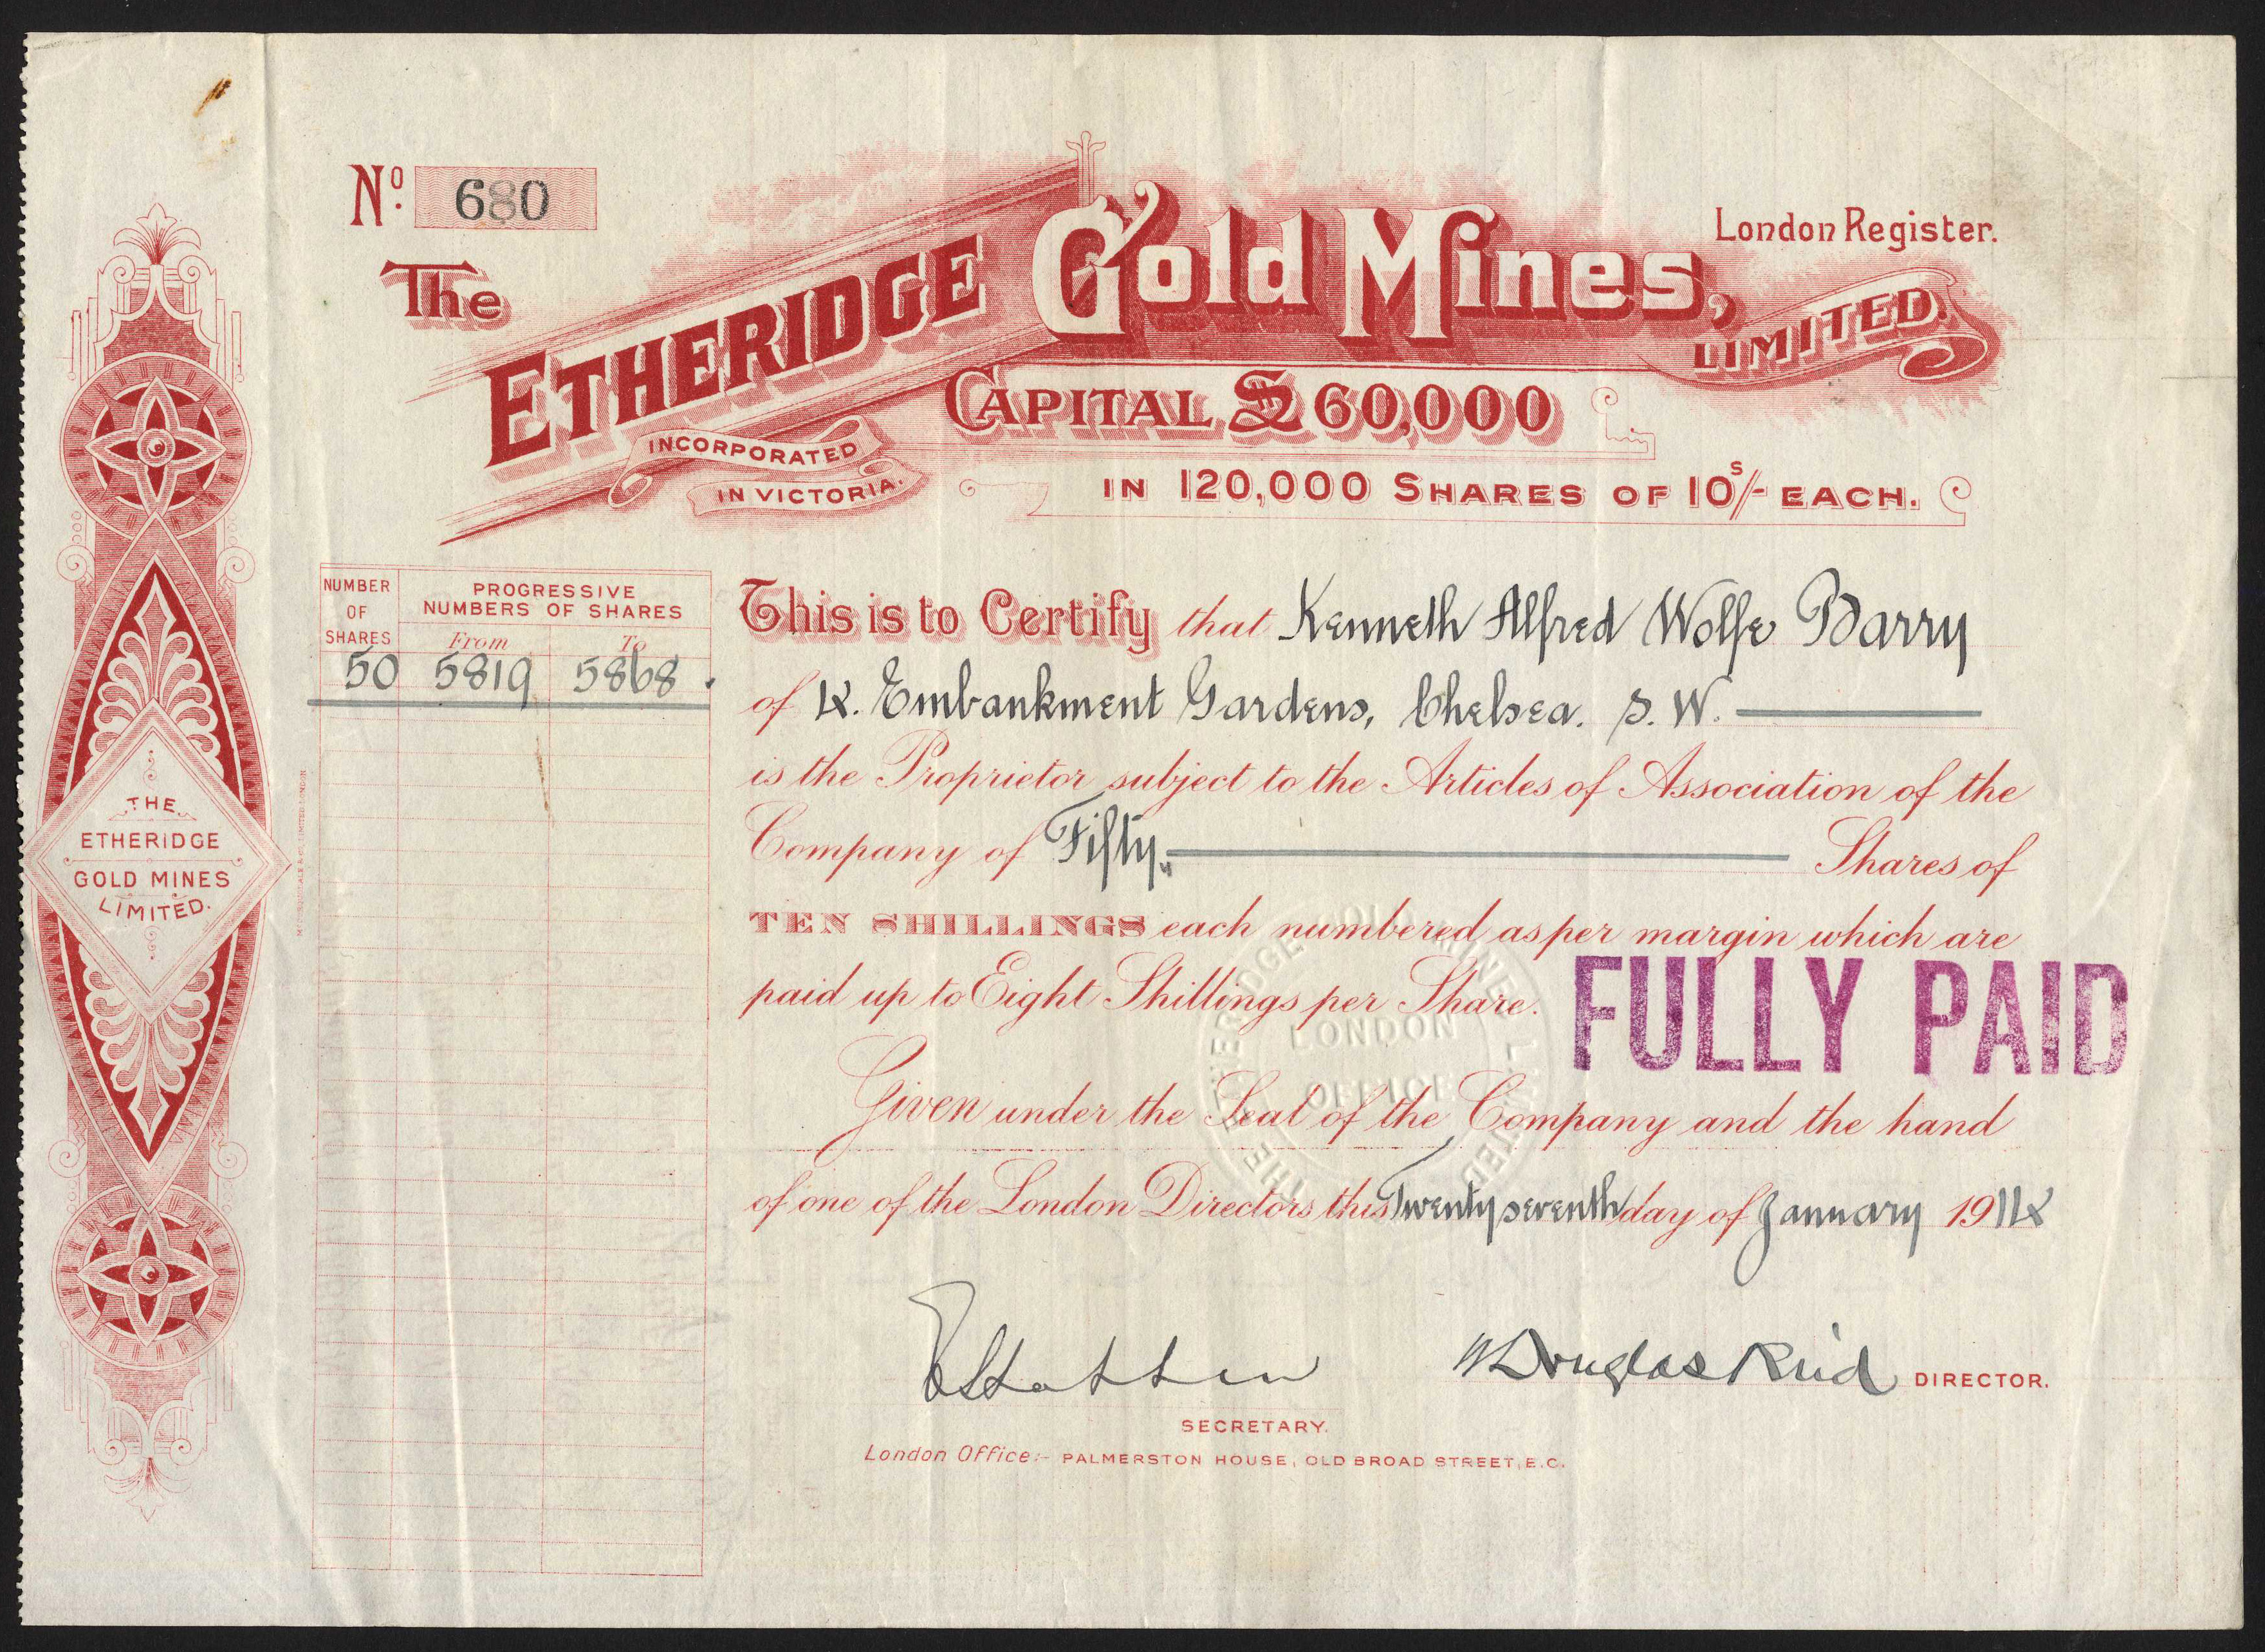 Nº. 680
London Register.
The
ETHERIDGE Gold Mines, LIMITED.
INCORPORATED
IN VICTORIA.
CAPITAL £60,000
IN 120,000 SHARES OF 10S/- EACH.
NUMBER OF SHARES
PROGRESSIVE NUMBERS OF SHARES
From To
50 5819 5868.
This is to Certify that Kenneth Alfred Wolfe Barry
of 4. Embankment Gardens, Chelsea. S. W.
is the Proprietor subject to the Articles of Association of the
Company of Fifty Shares of
TEN SHILLINGS each numbered as per margin which are
paid up to Eight Shillings per Share.
FULLY PAID
Given under the Seal of the Company and the hand
of one of the London Directors this Twenty seventh day of January 1914
THE ETHERIDGE GOLD MINES LIMITED
LONDON
OFFICE
Douglas Reid DIRECTOR.
SECRETARY.
London Office:- PALMERSTON HOUSE, OLD BROAD STREET, E.C.
THE
ETHERIDGE
GOLD MINES
LIMITED.